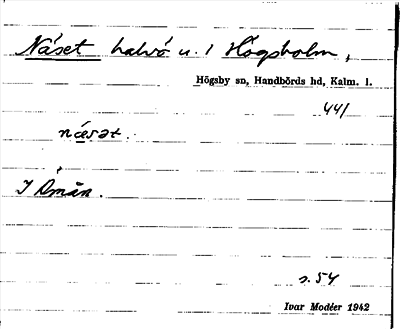 Näset halvö u. 1 Högsholm,
Högsby sn, Handbörds hd, Kalm. l.
441
næsət.
I Åmån.
s. 54
Ivar Modéer 1942